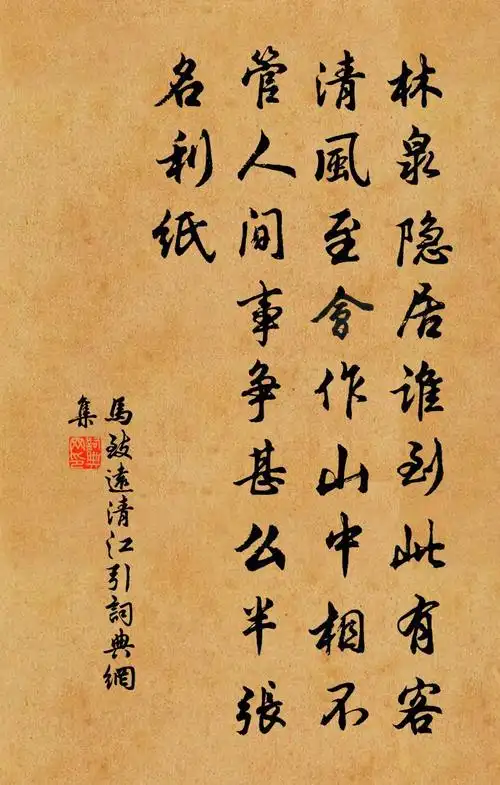 林泉隐居谁到此有客
清風至會作山中相不
管人间事争甚么半张
名利纸
馬致遠清江引詞典網
集